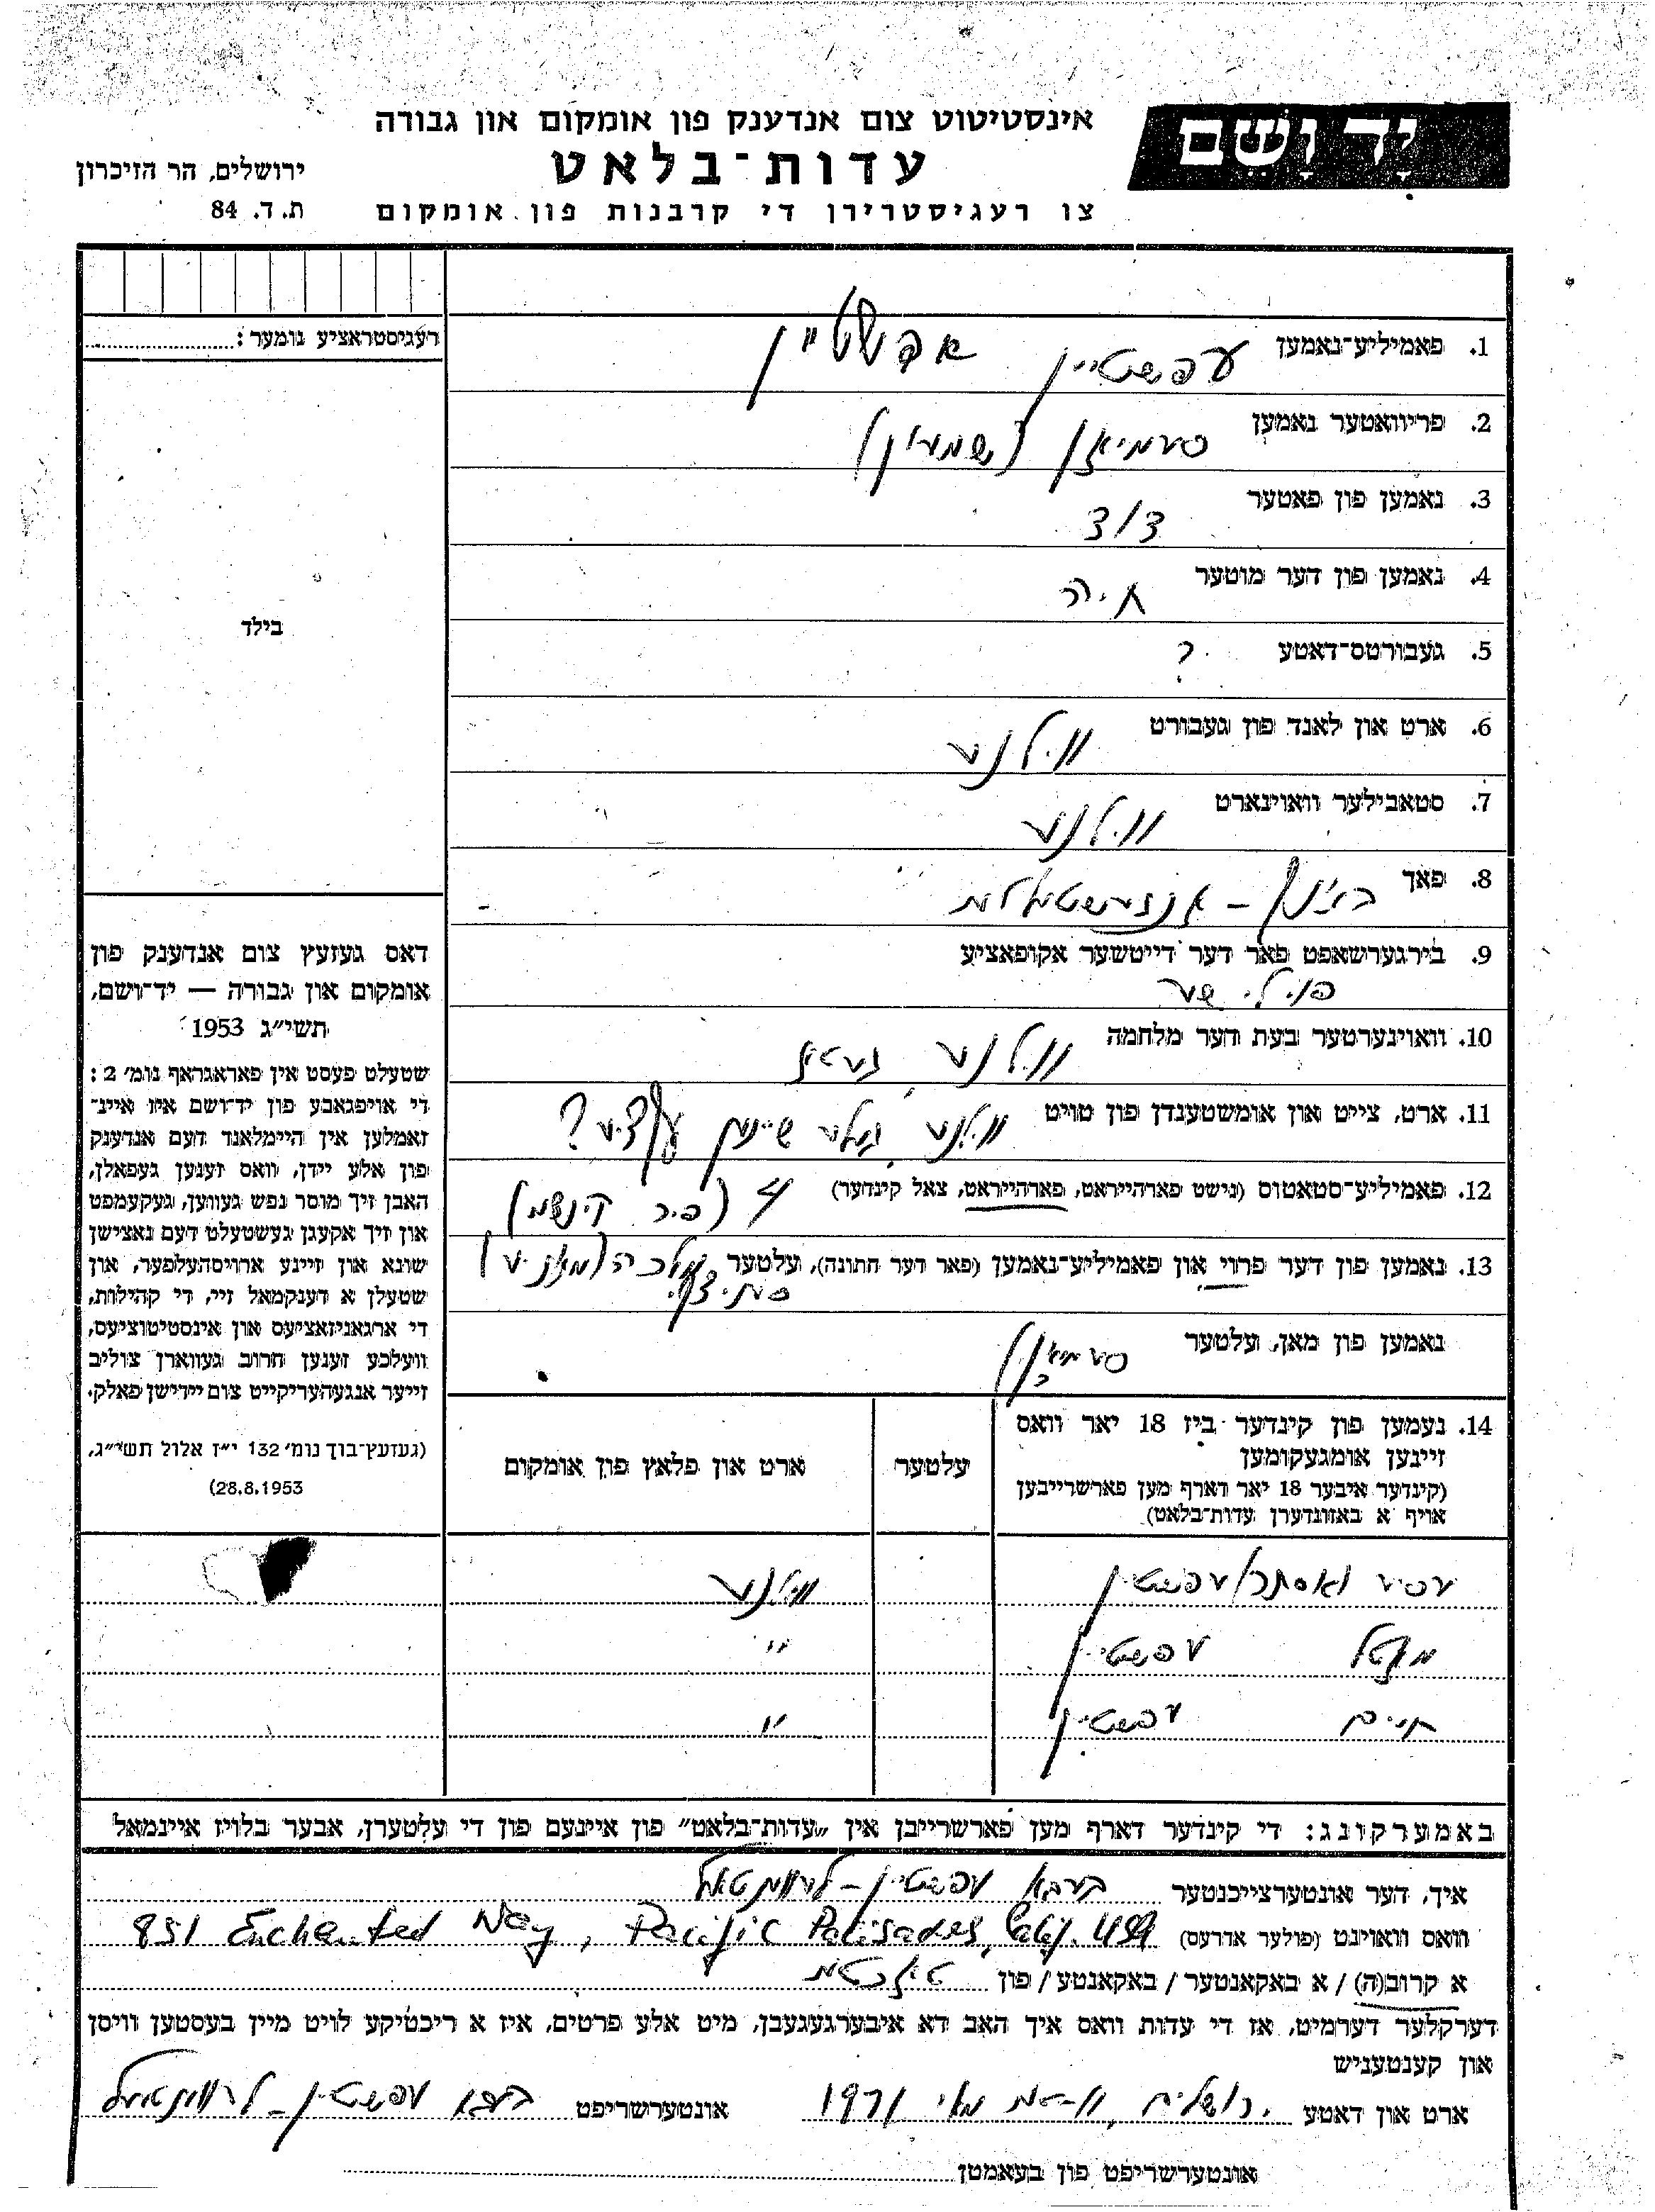 יד ושם
אינסטיטוט צום אנדענק פון אומקום און גבורה
עדות־בלאט
צו רעגיסטרירן די קרבנות פון אומקום
ירושלים, הר הזיכרון
ת. ד. 84
רעגיסטראציע נומער:
בילד
דאס געזעץ צום אנדענק פון
אומקום און גבורה — יד־ושם,
תשי״ג 1953
שטעלט פעסט אין פאראגראף נומ׳ 2:
די אויפגאבע פון יד־ושם איז איינ־
זאמלען אין היימלאנד דעם אנדענק
פון אלע יידן, וואס זענען געפאלן,
האבן זיך מוסר נפש געווען, געקעמפט
און זיך אקעגן געשטעלט דעם נאצישן
שונא און זיינע ארויסהעלפער, און
שטעלן א דענקמאל זיי, די קהילות,
די ארגאניזאציעס און אינסטיטוציעס,
וועלכע זענען חרוב געווארן צוליב
זייער אנגעהעריקייט צום יידישן פאלק.
(געזעץ־בוך נומ׳ 132 י״ז אלול תשי״ג,
28.8.1953)
1. פאמיליע־נאמען עפשטיין אפשטיין
2. פריוואטער נאמען סעמיאן (שמעון)
3. נאמען פון פאטער
4. נאמען פון דער מוטער חיה
5. געבורטס־דאטע ?
6. ארט און לאנד פון געבורט ווילנע
7. סטאבילער וואוינארט ווילנע
8. פאך
9. בירגערשאפט פאר דער דייטשער אקופאציע
פוילישע
10. וואוינערטער בעת דער מלחמה ווילנע געטא
11. ארט, צייט און אומשטענדן פון טויט ווילנע ?
12. פאמיליע־סטאטוס (נישט פארהייראט, פארהייראט, צאל קינדער) 4
13. נאמען פון דער פרוי און פאמיליע־נאמען (פאר דער חתונה), עלטער מלכה (מאניע)
נאמען פון מאן, עלטער סעמיאן
14. נעמען פון קינדער ביז 18 יאר וואס
זיינען אומגעקומען
(קינדער איבער 18 יאר דארף מען פארשרייבן
אויף א באזונדערן עדות־בלאט)
עלטער
ארט און פלאץ פון אומקום
עסיע (אסתר) עפשטיין ווילנע
מוטל עפשטיין "
חיים עפשטיין "
באמערקונג: די קינדער דארף מען פארשרייבן אין „עדות־בלאט” פון איינעם פון די עלטערן, אבער בלויז איינמאל
איך, דער אונטערצייכנטער בעבא עפשטיין - לעווענטאל
וואס וואוינט (פולער אדרעס) 851 Enchanted Way, Pacific Palisades, Calif. USA
א קרוב(ה) / א באקאנטער / באקאנטע / פון טאכטער
דערקלער דערמיט, אז די עדות וואס איך האב דא איבערגעגעבן, מיט אלע פרטים, איז א ריכטיקע לויט מיין בעסטען וויסן
און קענטעניש
ארט און דאטע ירושלים, מאי 1971 אונטערשריפט בעבא עפשטיין - לעווענטאל
אונטערשריפט פון בעאמטן